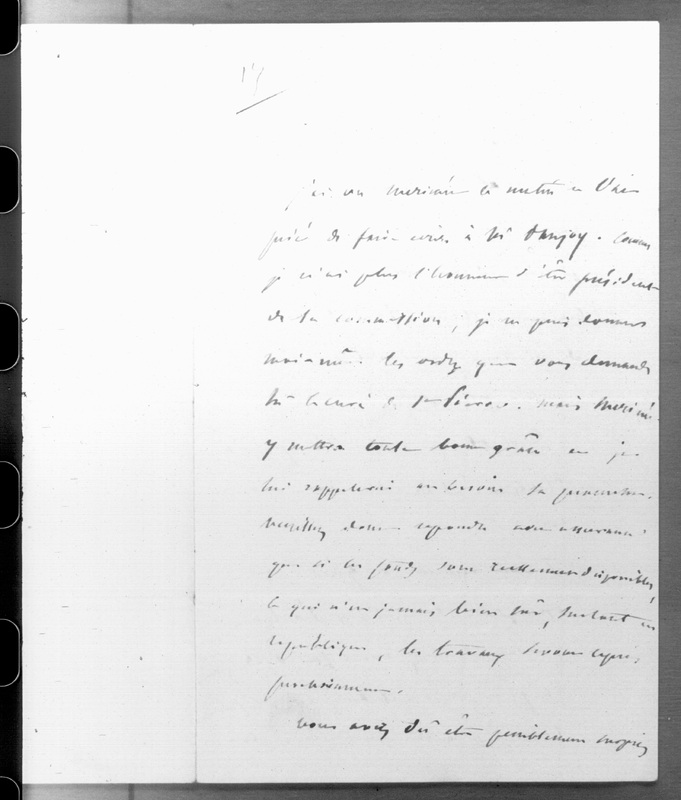 13
j'ai vu Merimée ce matin et l'ai
prié de faire écrire à Mr Danjoy. Comme
je n'ai plus l'honneur d'être président
de la commission, je ne puis donner
moi-même les ordres que vous demande
Mr le curé de St Pierre. mais Merimée
y mettra toute bonne grâce et je
lui rappelerai au besoin sa promesse.
veuillez donc repondre avec assurance
que si les fonds sont réellement disponibles,
ce qui n'est jamais bien sûr, surtout en
republique, les travaux seront repris
prochainement.
vous avez dû être peniblement surpris